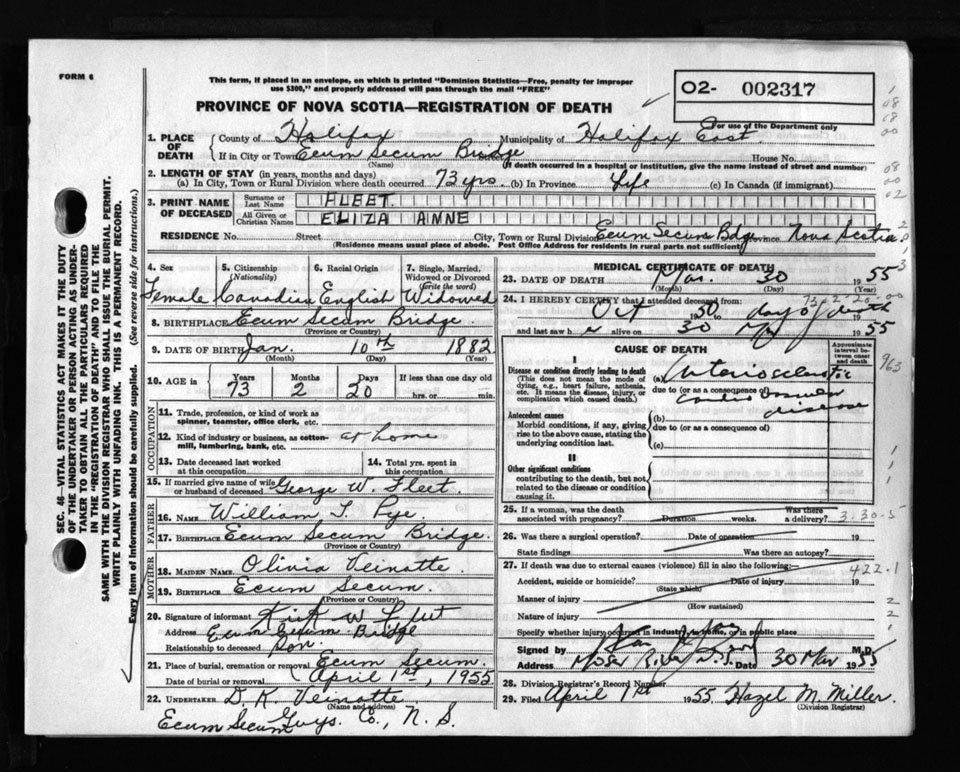 FORM 6
This form, if placed in an envelope, on which is printed "Dominion Statistics—Free, penalty for improper
use $300," and properly addressed will pass through the mail "FREE"
PROVINCE OF NOVA SCOTIA—REGISTRATION OF DEATH
02- 002317
For use of the Department only
SEC. 46—VITAL STATISTICS ACT MAKES IT THE DUTY
OF THE UNDERTAKER OR PERSON ACTING AS UNDER-
TAKER TO OBTAIN ALL THE PARTICULARS REQUIRED
IN THE "REGISTRATION OF DEATH" AND TO FILE THE
SAME WITH THE DIVISION REGISTRAR WHO SHALL ISSUE THE BURIAL PERMIT.
WRITE PLAINLY WITH UNFADING INK. THIS IS A PERMANENT RECORD.
Every item of Information should be carefully supplied. (See reverse side for instructions.)
1. PLACE OF DEATH County of Halifax Municipality of Halifax East
If in City or Town Ecum Secum Bridge Street House No.
(Name) (If death occurred in a hospital or institution, give the name instead of street and number)
2. LENGTH OF STAY (in years, months and days)
(a) In City, Town or Rural Division where death occurred 73 yrs. (b) In Province Life (c) In Canada (if immigrant)
3. PRINT NAME OF DECEASED Surname or Last Name FLEET
All Given or Christian Names ELIZA ANNE
RESIDENCE No. Street City, Town or Rural Division Ecum Secum Bdg Province Nova Scotia
(Residence means usual place of abode. Post Office Address for residents in rural parts not sufficient)
4. Sex 5. Citizenship (Nationality) 6. Racial Origin 7. Single, Married, Widowed or Divorced (write the word)
Female Canadian English Widowed
8. BIRTHPLACE Ecum Secum Bridge
(Province or Country)
9. DATE OF BIRTH Jan. 10th 1882
(Month) (Day) (Year)
10. AGE in Years Months Days If less than one day old
73 2 20 hrs. or min.
OCCUPATION
11. Trade, profession, or kind of work as
spinner, teamster, office clerk, etc.
12. Kind of industry or business, as cotton-
mill, lumbering, bank, etc. at home
13. Date deceased last worked
at this occupation
14. Total yrs. spent in
this occupation
15. If married give name of wife
or husband of deceased George W. Fleet.
FATHER
16. NAME William T. Pye.
17. BIRTHPLACE Ecum Secum Bridge.
(Province or Country)
MOTHER
18. MAIDEN NAME Olivia Veinotte
19. BIRTHPLACE Ecum Secum.
(Province or Country)
20. Signature of informant Kirk W Fleet
Address Ecum Secum Bridge
Relationship to deceased Son.
21. Place of burial, cremation or removal Ecum Secum.
Date of burial or removal April 1st, 1955
22. UNDERTAKER D. K. Veinotte
(Name and address)
Ecum Secum Guys. Co., N. S.
MEDICAL CERTIFICATE OF DEATH
23. DATE OF DEATH Mar. 30 1955
(Month) (Day) (Year)
24. I HEREBY CERTIFY that I attended deceased from:
Oct 1950 to day of death 19
and last saw her alive on 30 Mar 1955
CAUSE OF DEATH
Approximate interval between onset and death
I
Disease or condition directly leading to death
(This does not mean the mode of
dying, e.g., heart failure, asthenia,
etc. It means the disease, injury, or
complication which caused death.)
(a) Arteriosclerotic
due to (or as a consequence of)
Cardio Vascular
disease
Antecedent causes
Morbid conditions, if any, giving
rise to the above cause, stating the
underlying condition last.
(b)
due to (or as a consequence of)
(c)
II
Other significant conditions
contributing to the death, but not
related to the disease or condition
causing it.
25. If a woman, was the death
associated with pregnancy? Duration weeks. Was there a delivery?
3.30.5
26. Was there a surgical operation? Date of operation 19
State findings Was there an autopsy?
27. If death was due to external causes (violence) fill in also the following:
422.1
Accident, suicide or homicide? Date of injury 19
(State which)
Manner of injury
(How sustained)
Nature of injury
Specify whether injury occurred in industry, in home, or in public place
Signed by M.D.
Address Moser River N.S. Date 30 Mar 1955
28. Division Registrar's Record Number
29. Filed April 1st 1955 Hazel M. Miller.
(Division Registrar)